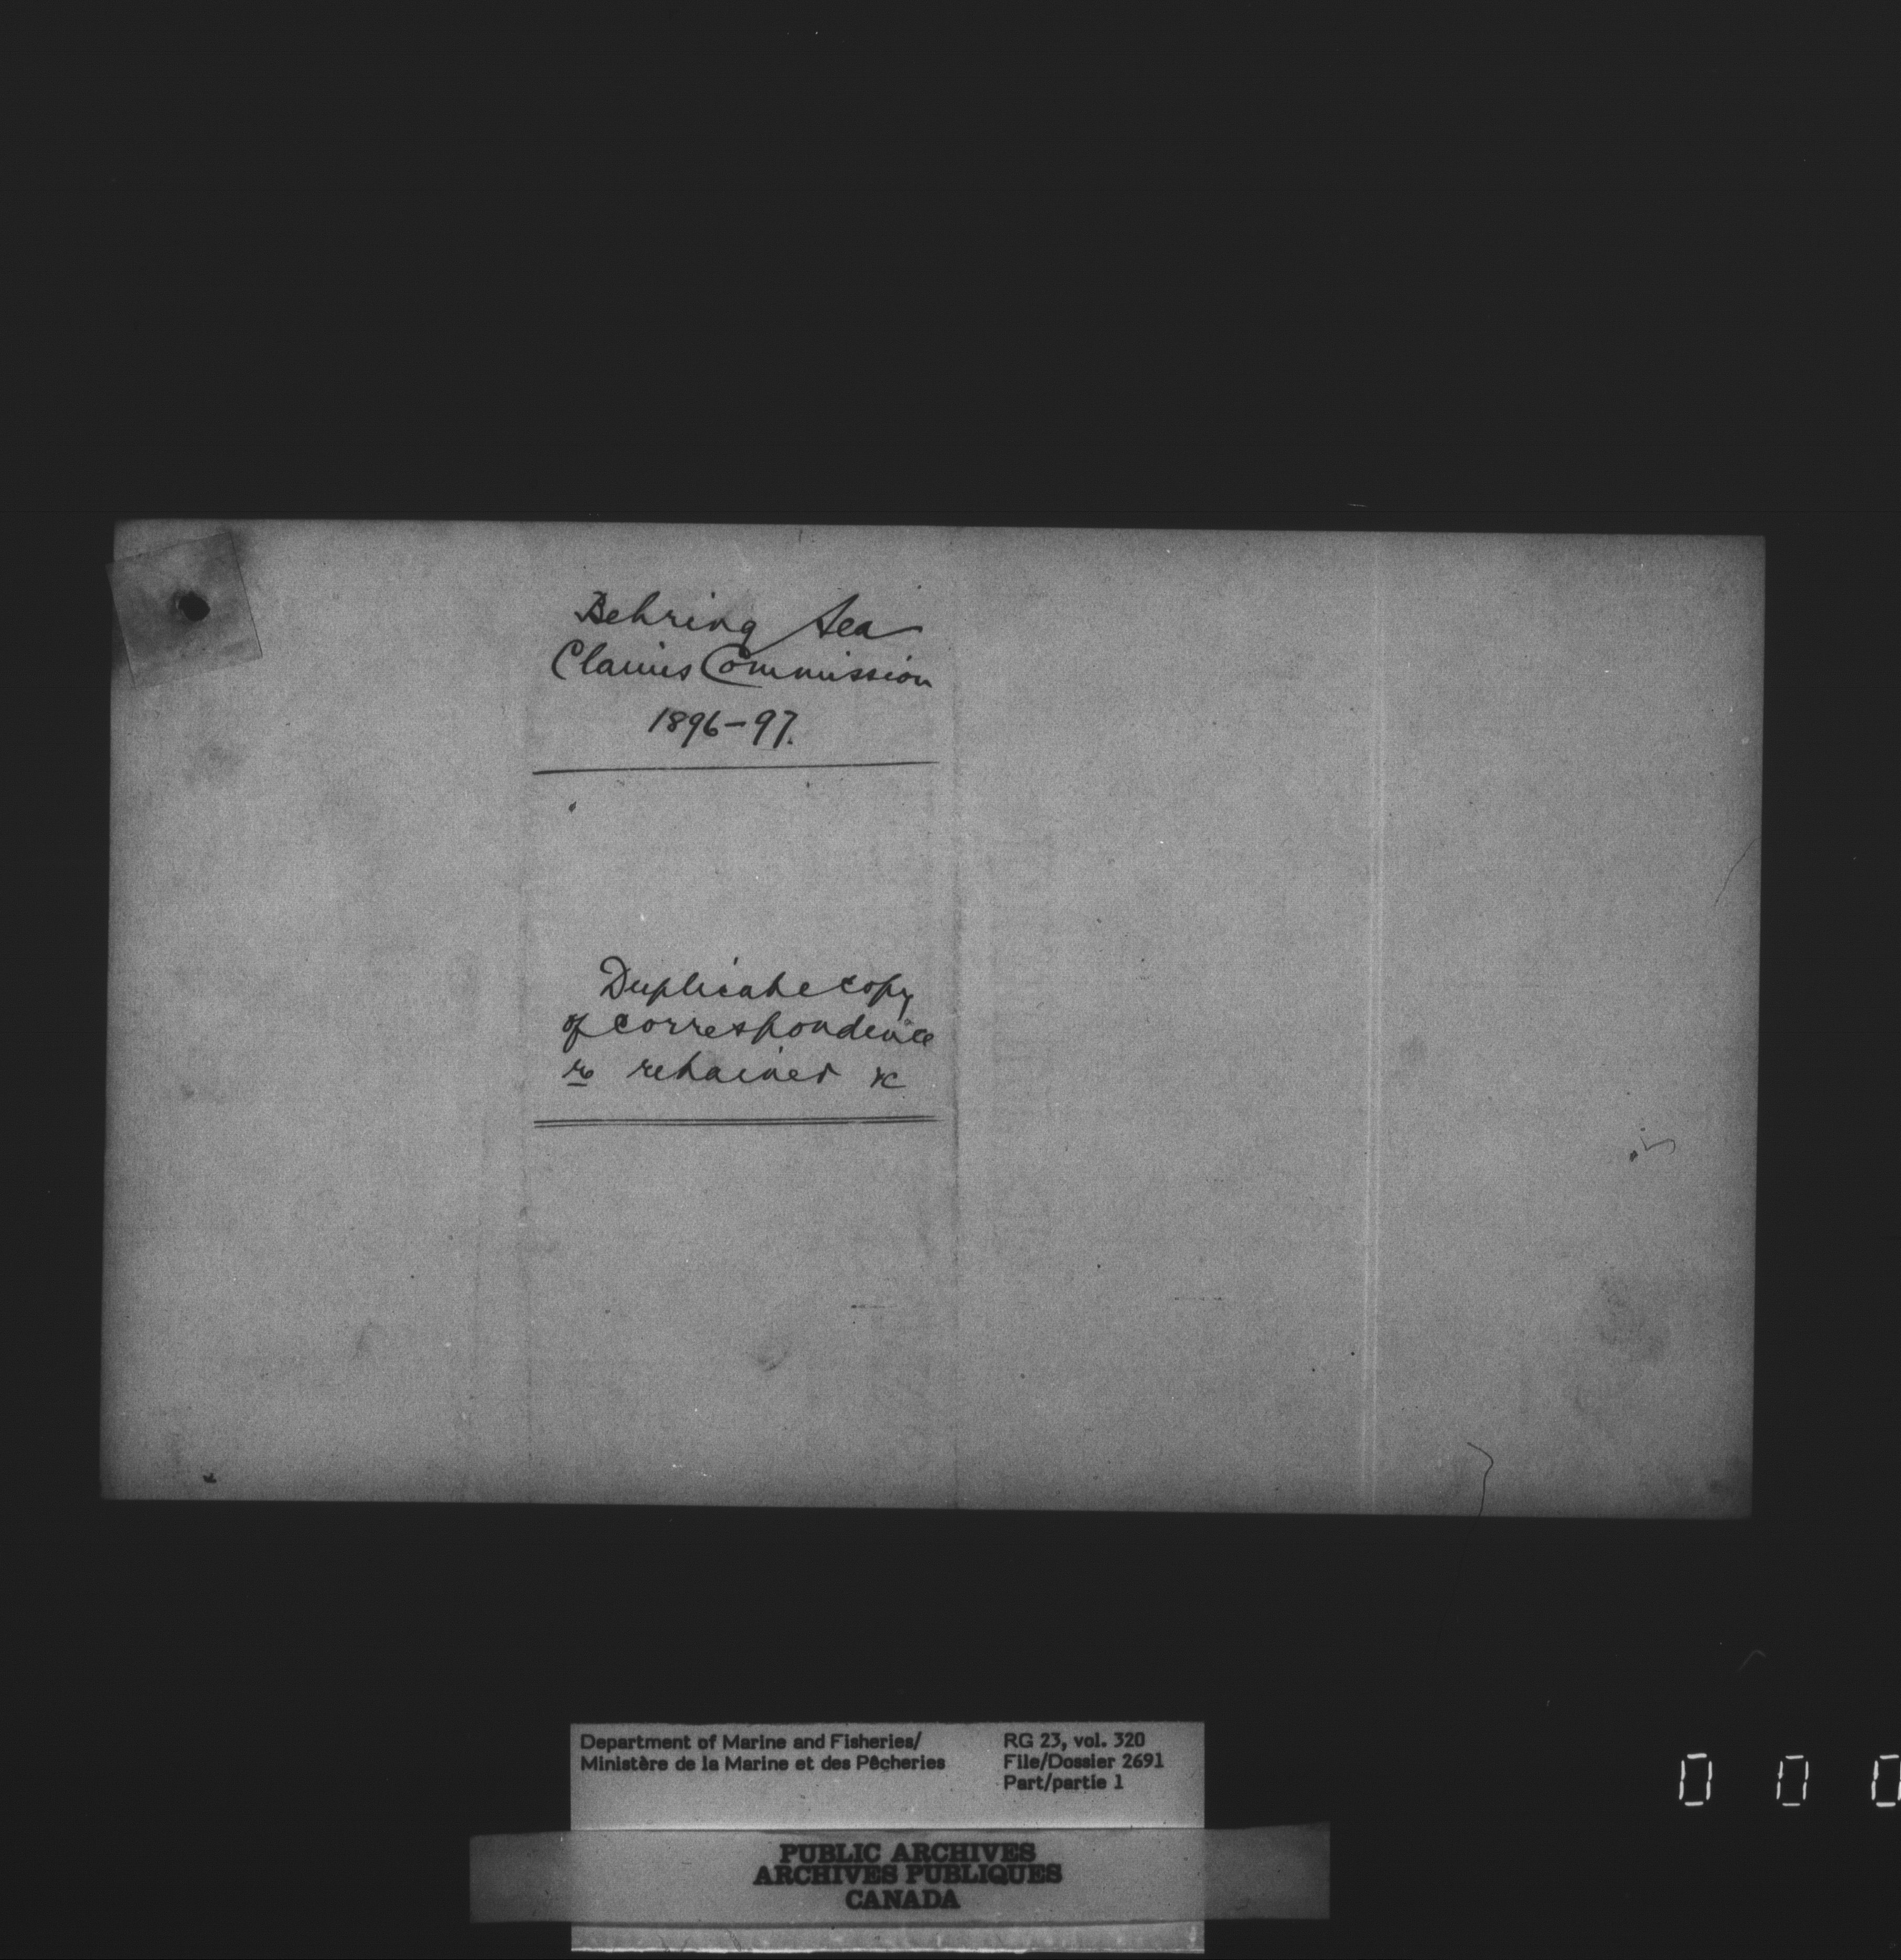 Behring Sea
Claims Commission
1896-97.
Duplicate copy
of correspondence
re retainer &c
Department of Marine and Fisheries/
Ministère de la Marine et des Pêcheries
RG 23, vol. 320
File/Dossier 2691
Part/partie 1
PUBLIC ARCHIVES
ARCHIVES PUBLIQUES
CANADA
0 0 0